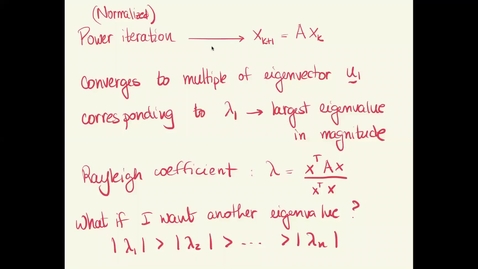 (Normalized)
Power iteration ⟶ x_{k+1} = A x_k
converges to multiple of eigenvector u_1
corresponding to λ_1 → largest eigenvalue
in magnitude
Rayleigh coefficient : λ = x^T A x / x^T x
What if I want another eigenvalue ?
|λ_1| > |λ_2| > ... > |λ_n|